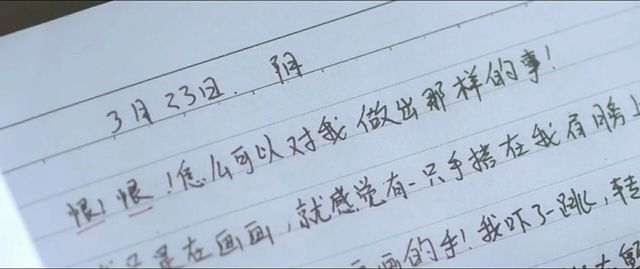 3月23日. 阴
恨！恨！怎么可以对我做出那样的事！
只是在画画，就感觉有一只手搭在我肩膀上
画的手！我吓了一跳，转